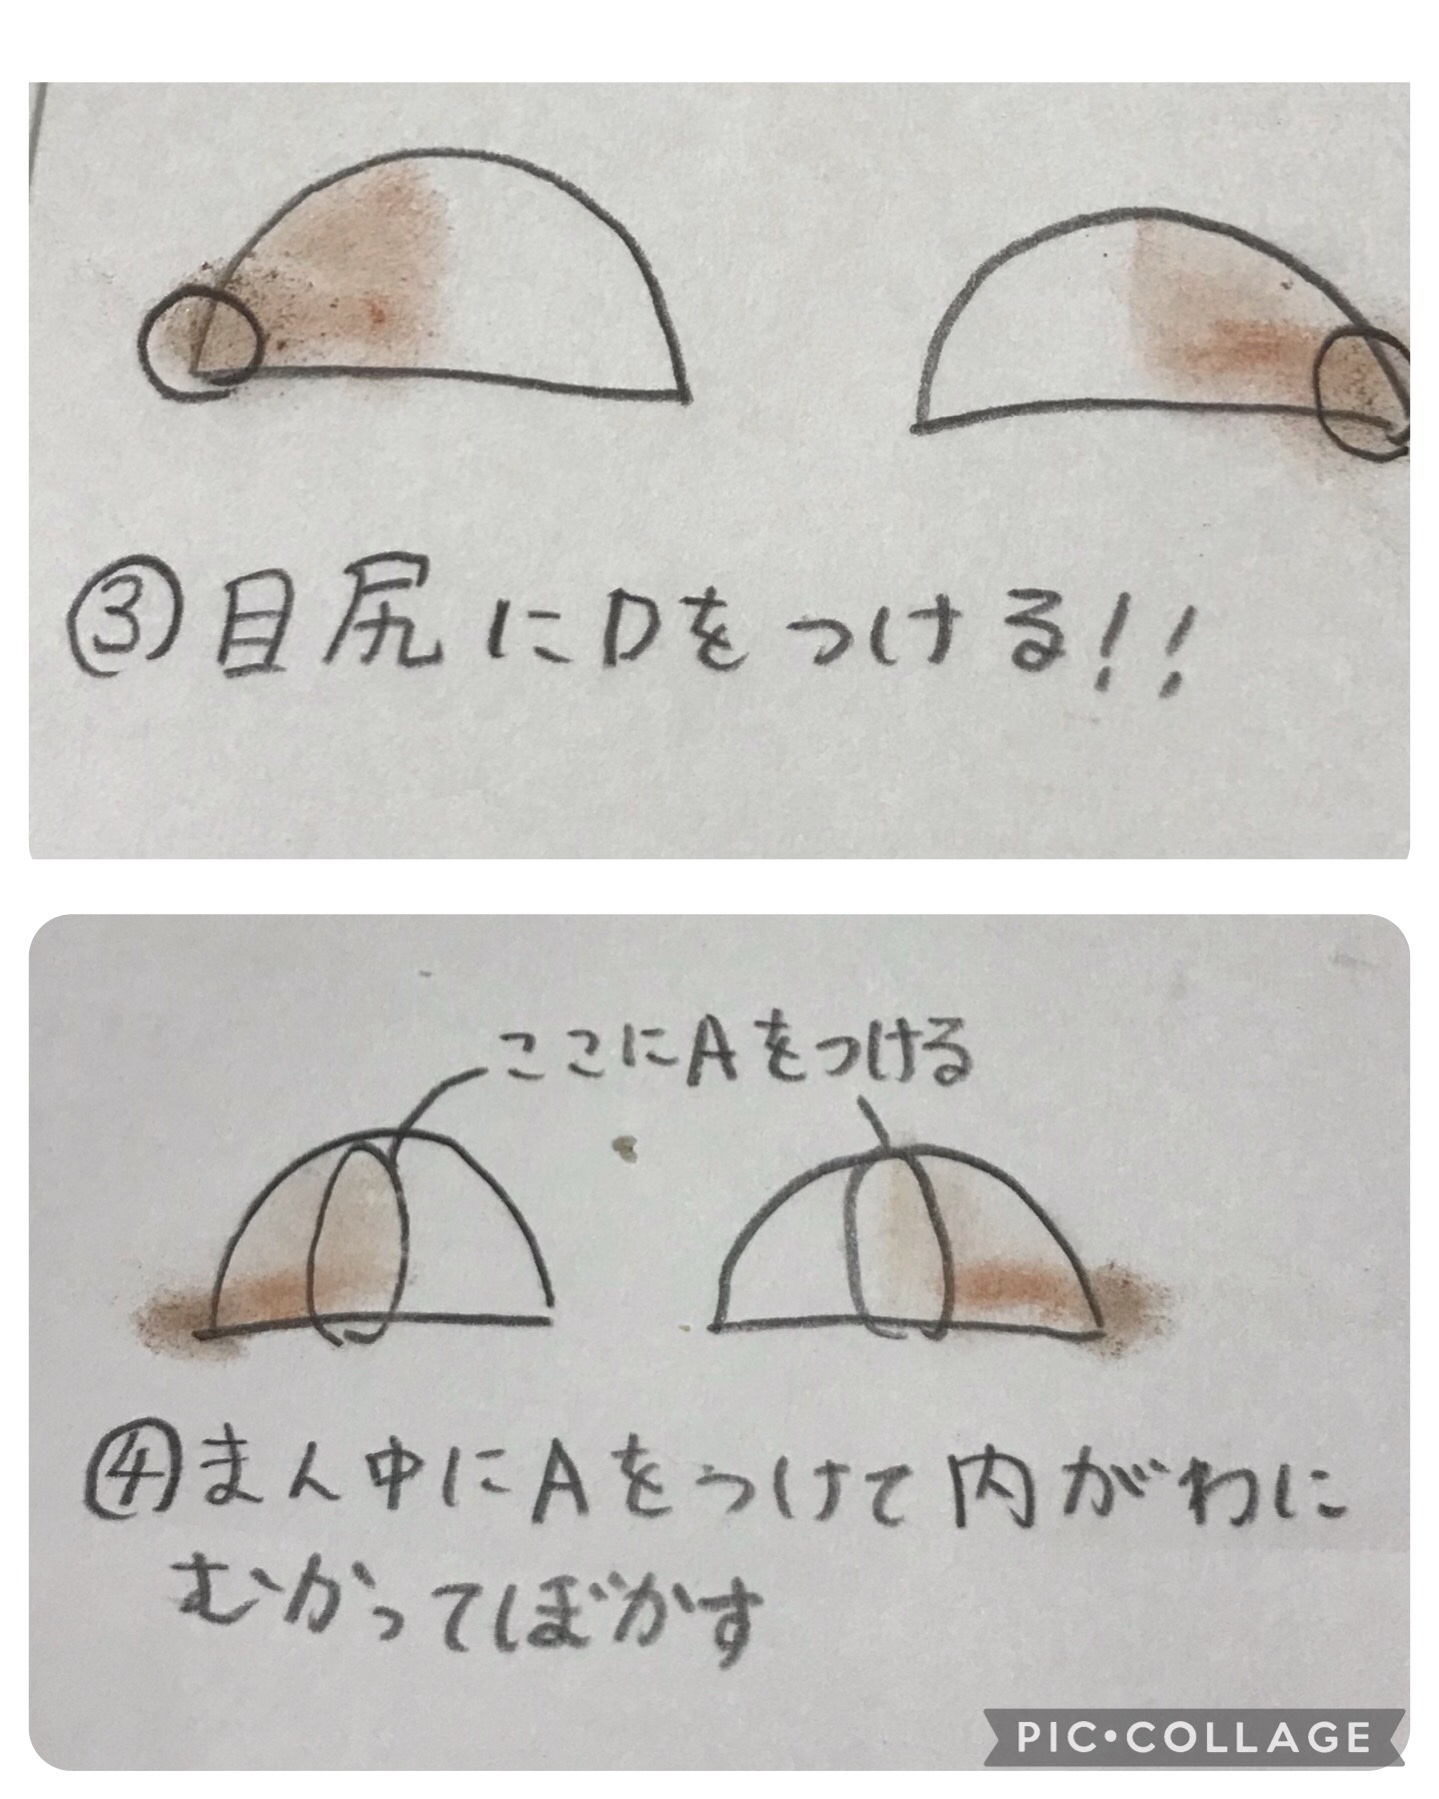 ③目尻にDをつける!!
ここにAをつける
④まん中にAをつけて内がわに
むかってぼかす
PIC•COLLAGE